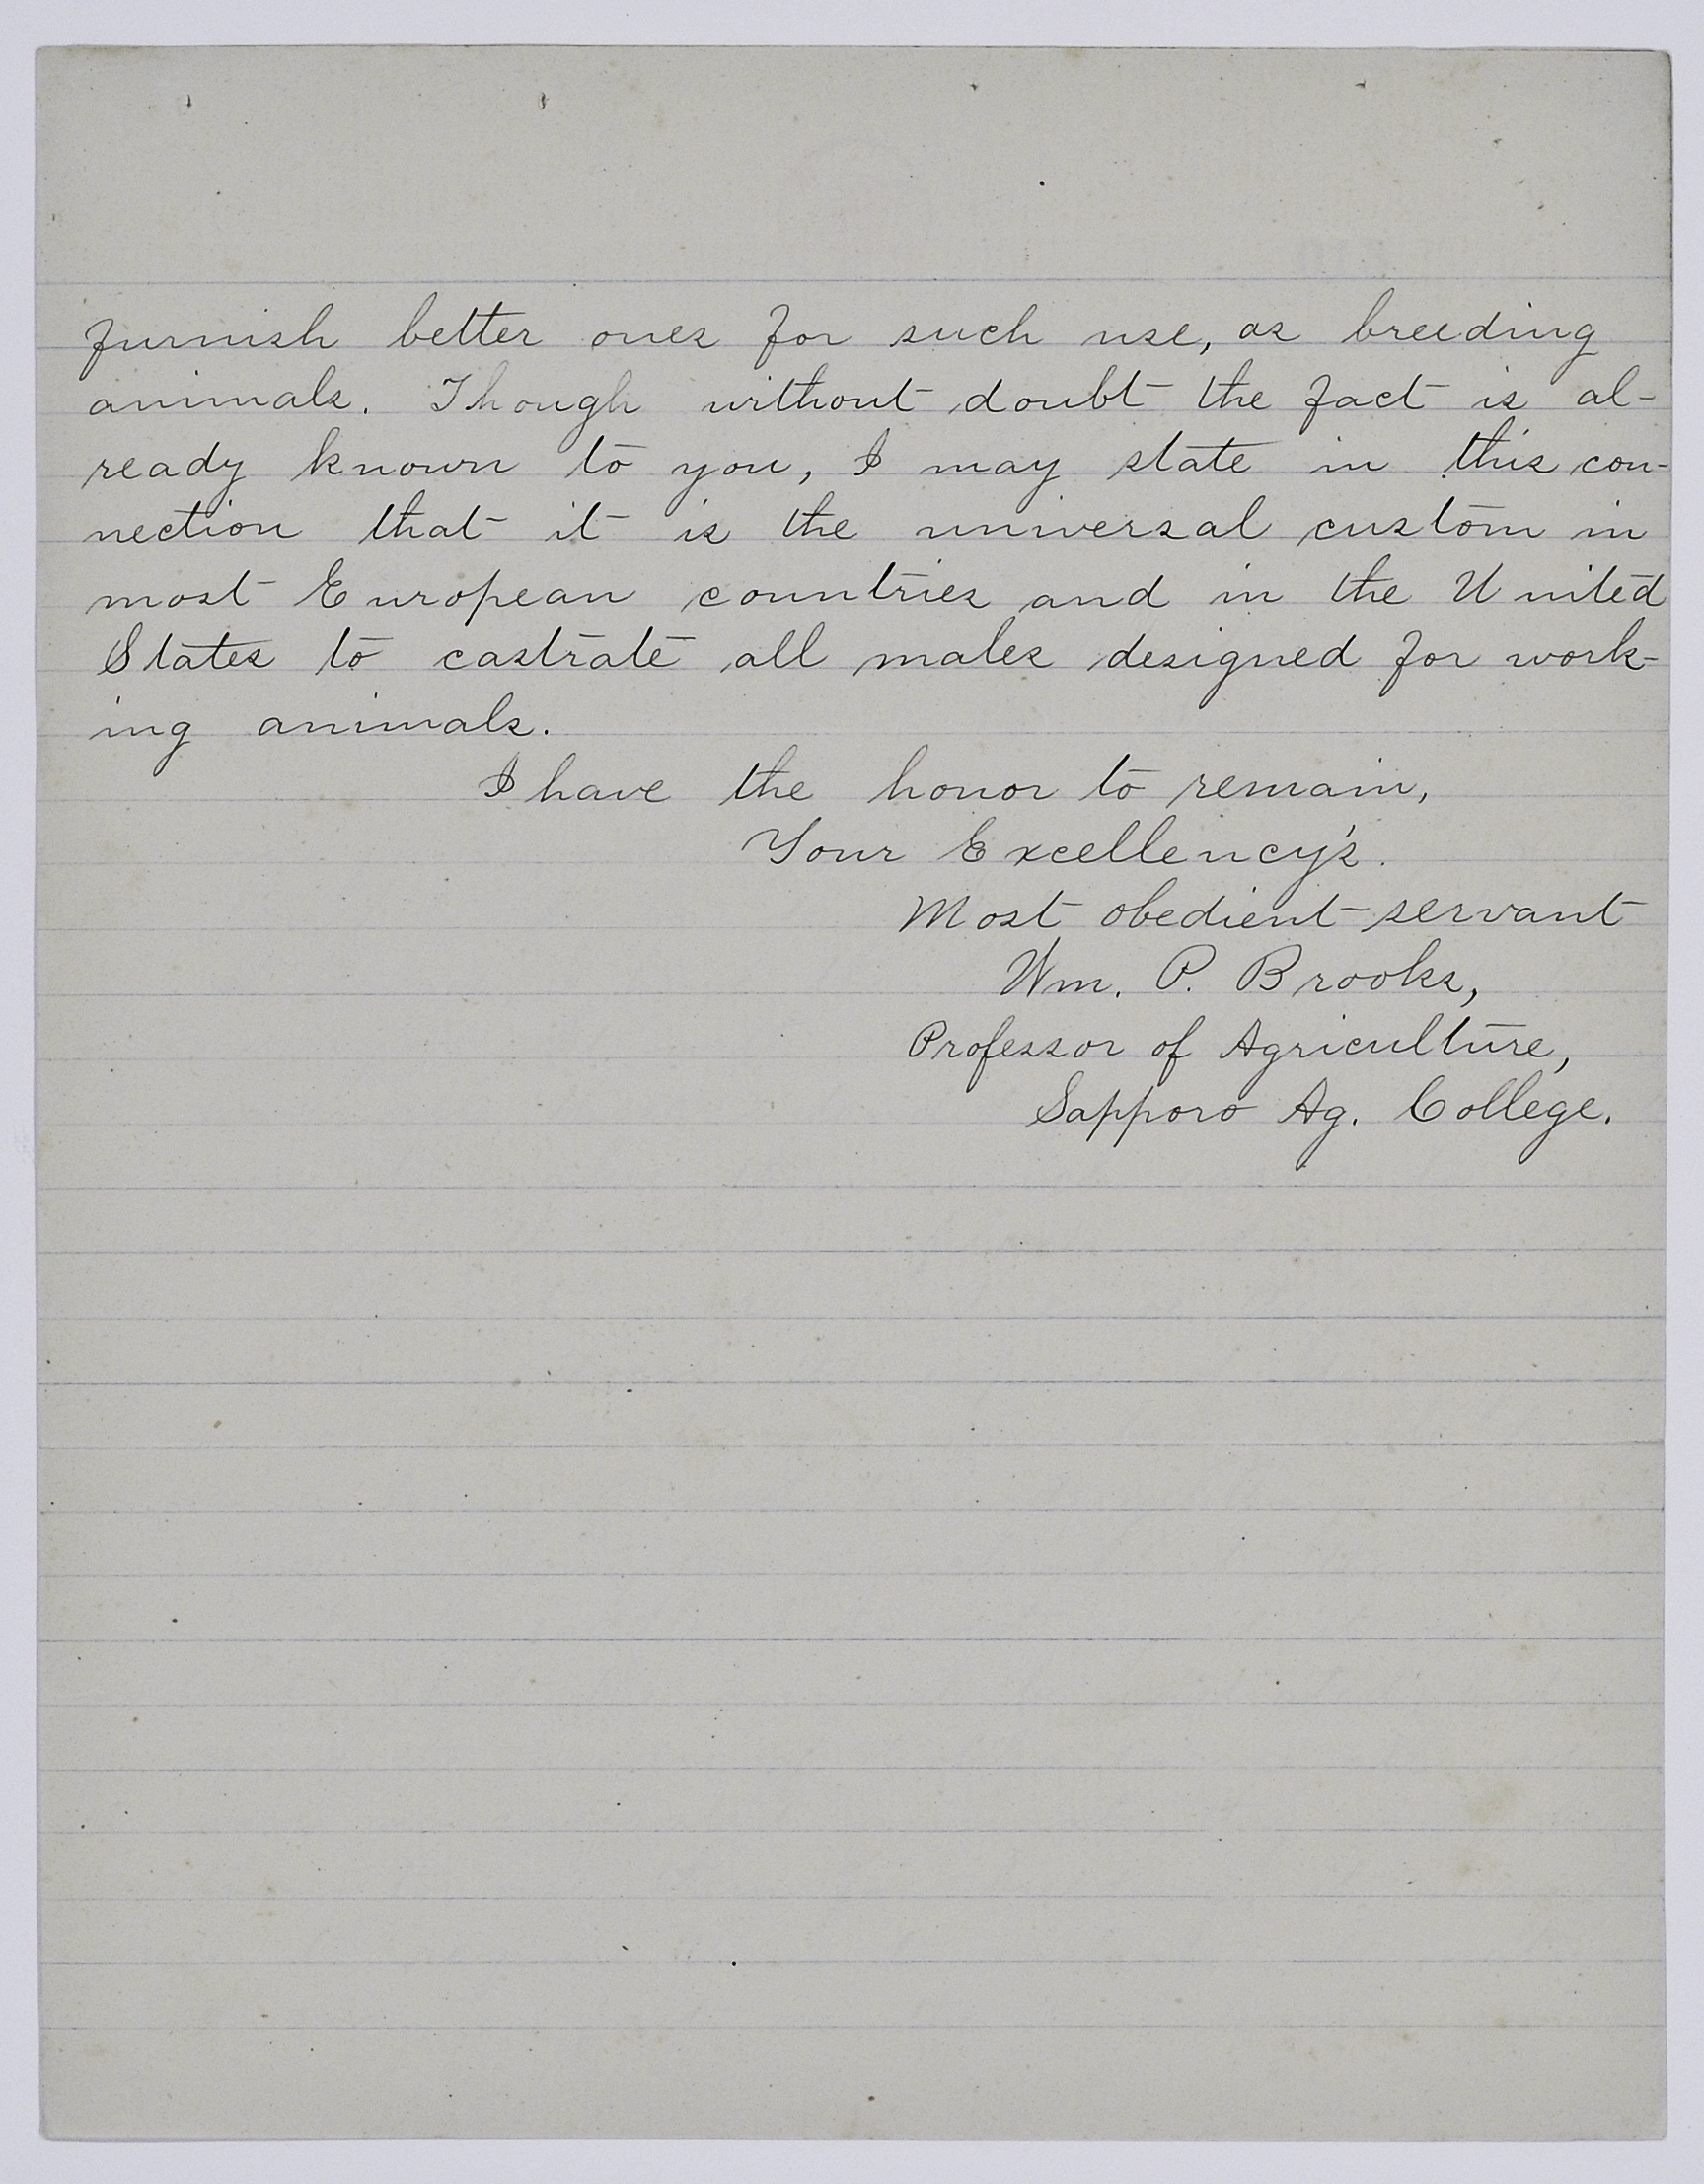 furnish better ones for such use, as breeding
animals. Though without doubt the fact is al-
ready known to you, I may state in this con-
nection that it is the universal custom in
most European countries and in the United
States to castrate all males designed for work-
ing animals.
I have the honor to remain,
Your Excellency's.
Most obedient servant
Wm. P. Brooks,
Professor of Agriculture,
Sapporo Ag. College.